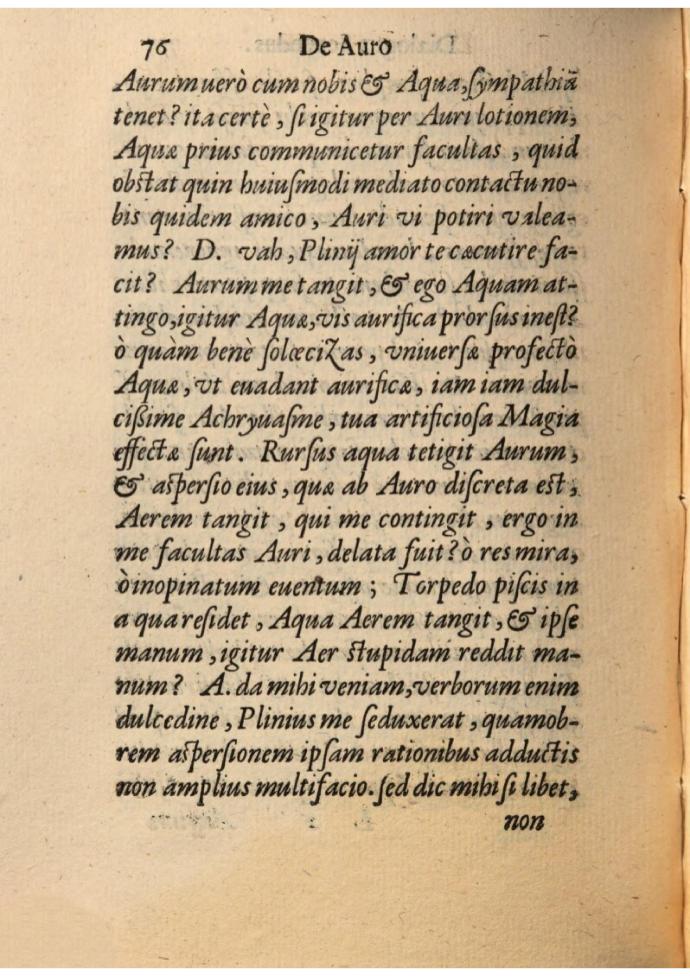 76 De Auro
Aurum uerò cum nobis & Aqua, ſympathiā
tenet? ita certè, ſi igitur per Auri lotionem,
Aquæ prius communicetur facultas, quid
obſtat quin huiuſmodi mediato contactu no-
bis quidem amico, Auri vi potiri valea-
mus? D. vah, Plinij amor te cæcutire fa-
cit? Aurum me tangit, & ego Aquam at-
tingo, igitur Aquæ, vis aurifica prorſus ineſt?
ò quàm benè ſolœcizas, vniuerſæ profectò
Aquæ, vt euadant aurificæ, iam iam dul-
cißime Achryuaſme, tua artificioſa Magia
effectæ ſunt. Rurſus aqua tetigit Aurum,
& aſperſio eius, quæ ab Auro diſcreta eſt,
Aerem tangit, qui me contingit, ergo in
me facultas Auri, delata fuit? ò res mira,
ò inopinatum euentum; Torpedo piſcis in
aqua reſidet, Aqua Aerem tangit, & ipſe
manum, igitur Aer ſtupidam reddit ma-
num? A. da mihi veniam, verborum enim
dulcedine, Plinius me ſeduxerat, quamob-
rem aſperſionem ipſam rationibus adductis
non amplius multifacio. ſed dic mihi ſi libet,
non